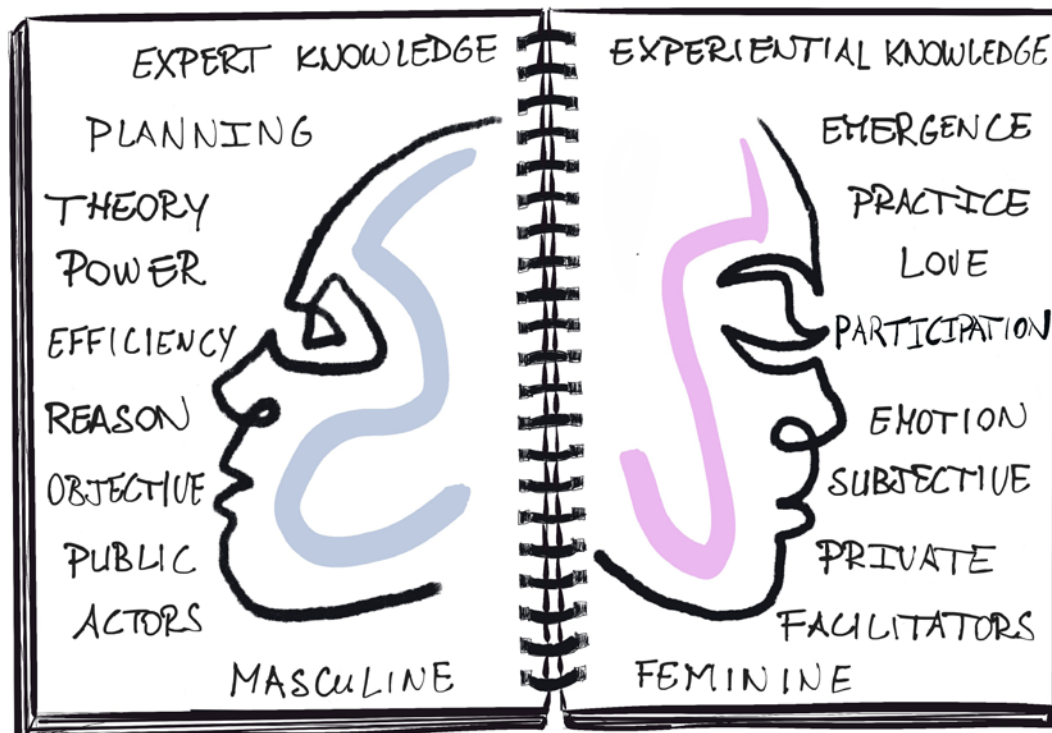 EXPERT KNOWLEDGE
PLANNING
THEORY
POWER
EFFICIENCY
REASON
OBJECTIVE
PUBLIC
ACTORS
MASCULINE
EXPERIENTIAL KNOWLEDGE
EMERGENCE
PRACTICE
LOVE
PARTICIPATION
EMOTION
SUBJECTIVE
PRIVATE
FACILITATORS
FEMININE